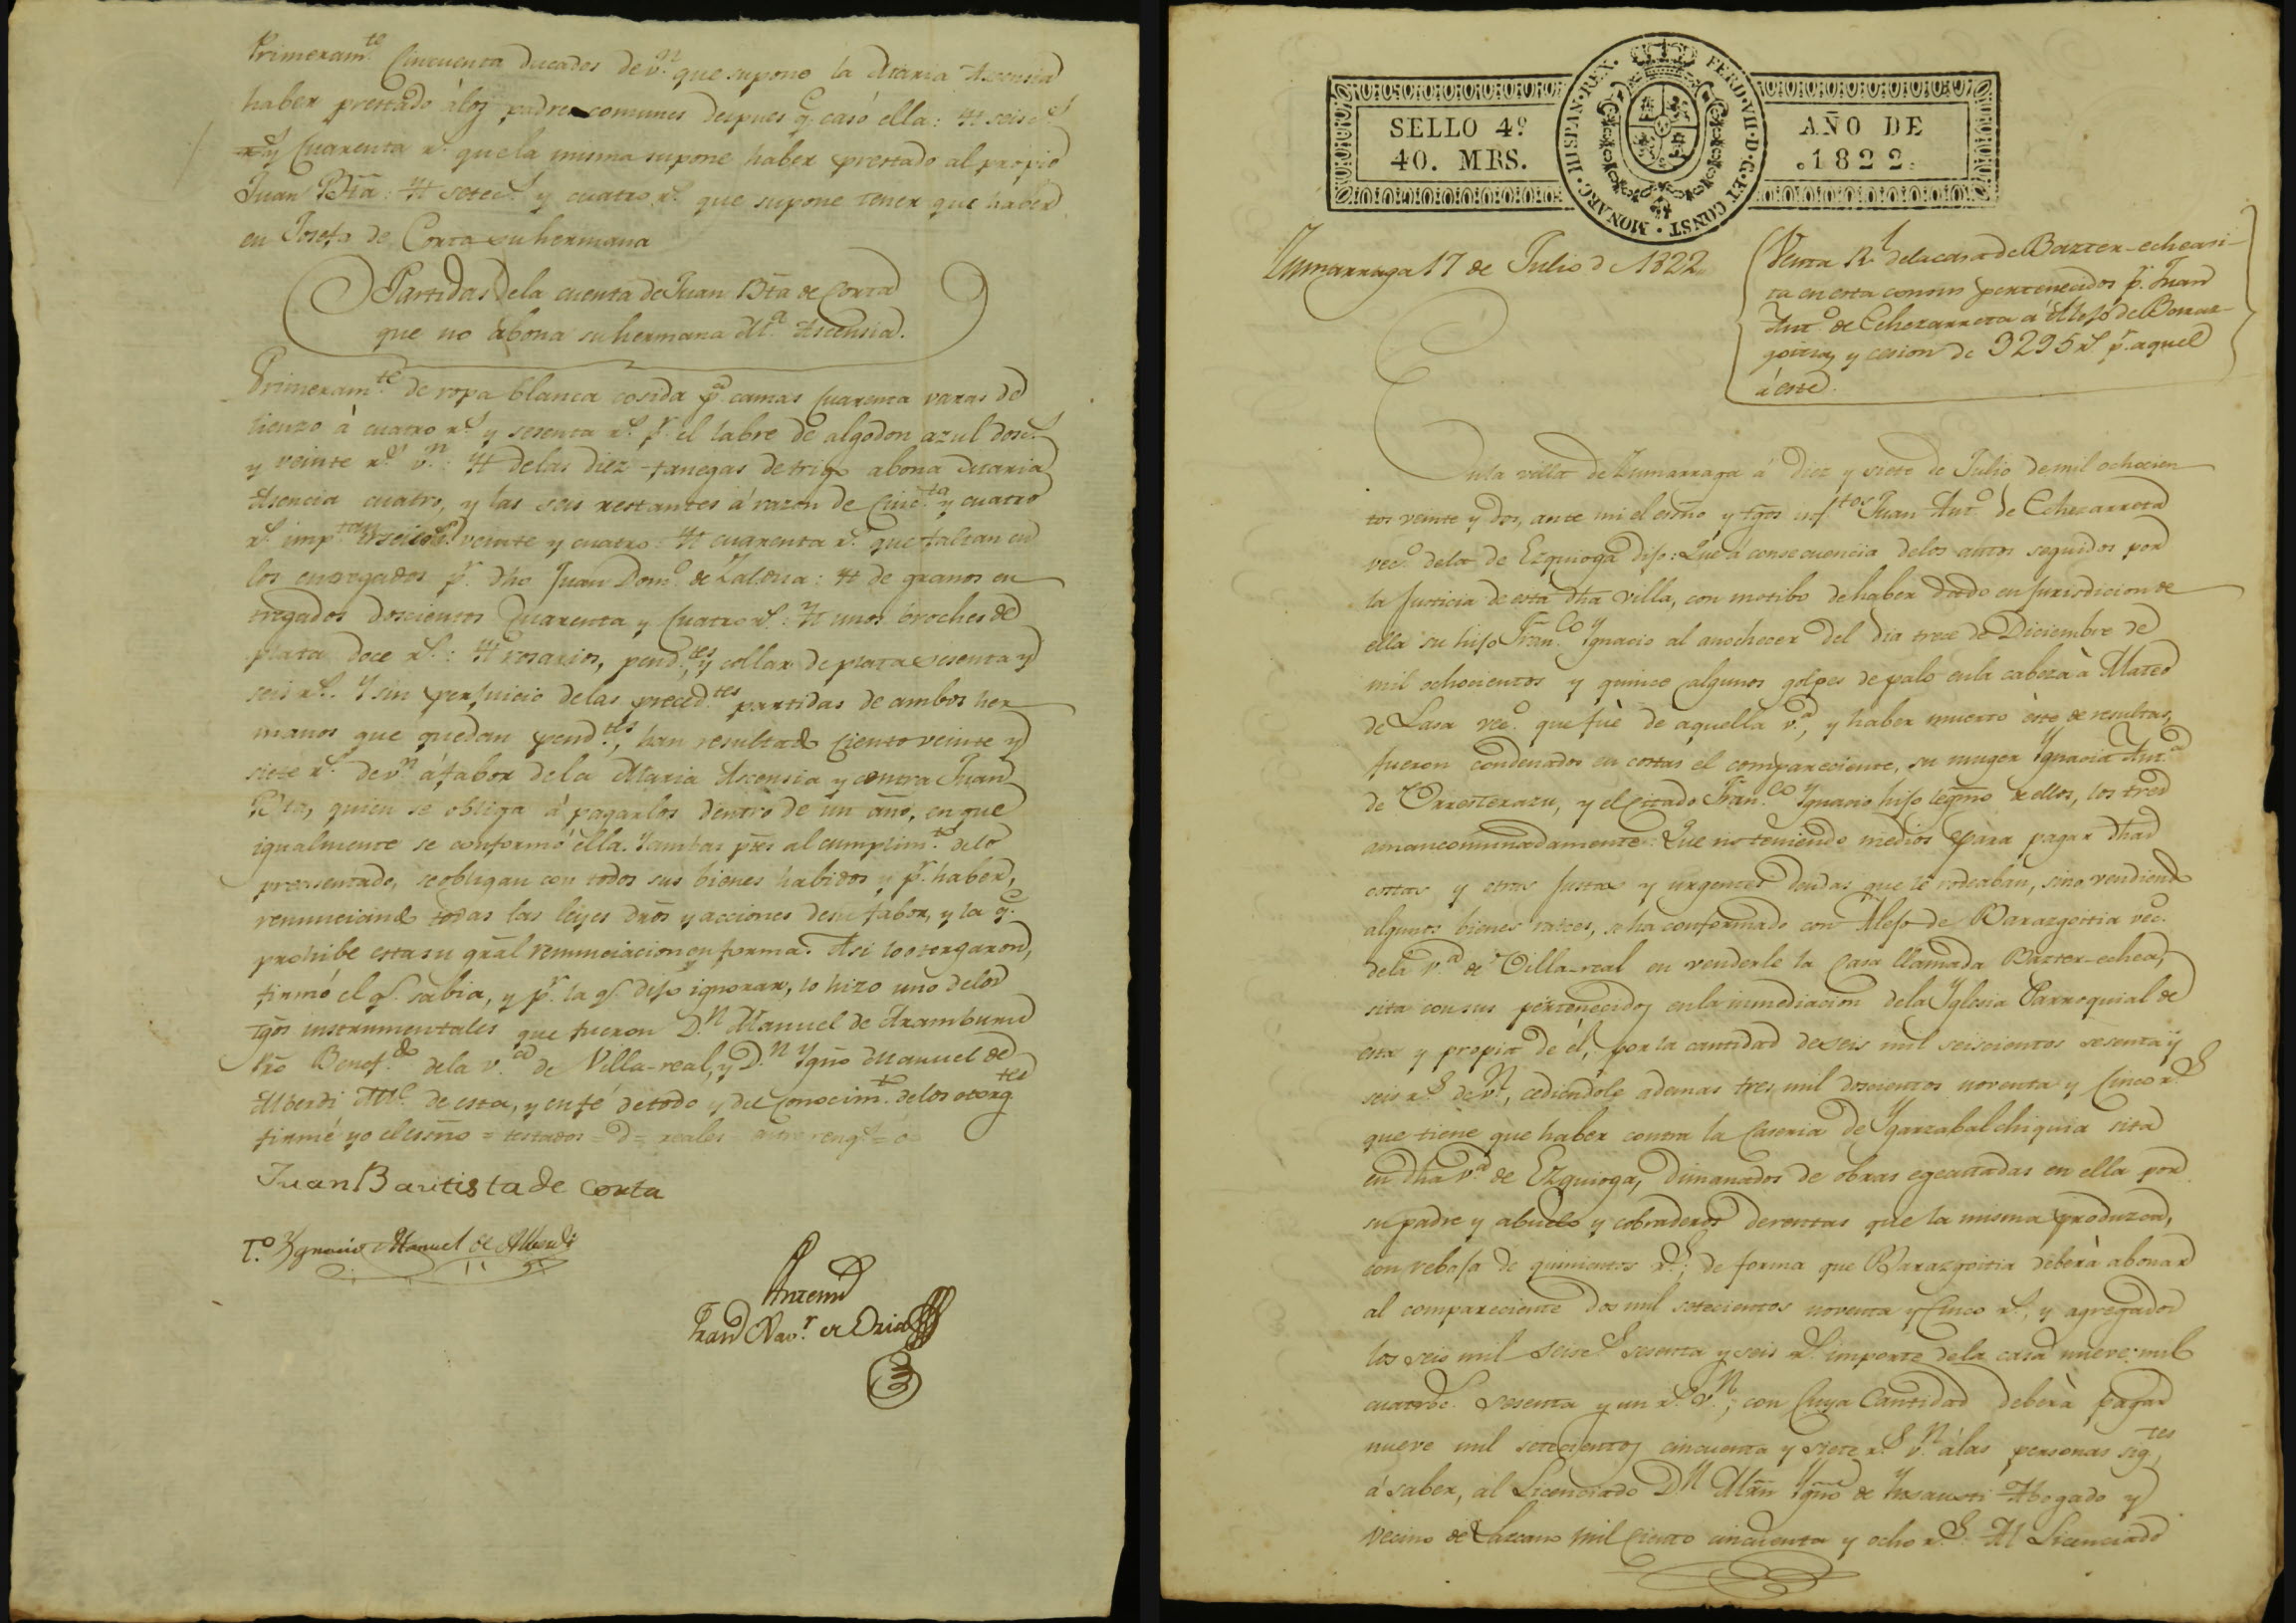 Primeram.te Cincuenta ducados de v.n que supone la Maria Ascensia
haber prestado álos padres comunes despues q.e casó ella: Yt seisc.s
y Cuarenta r.s que la misma supone haber prestado al propio
Juan Bta: Yt setec.s y cuatro r.s que supone tener que haber
en Josefa de Corta su hermana
Partidas dela cuenta de Juan Bta de Corta
que no abona su hermana M.a Ascensia.
Primeram.te de ropa blanca cosida p.a camas Cuarenta varas de
lienzo à cuatro r.s y sesenta r.s p.r el labre de algodon azul dosc.s
y veinte r.s v.n: Yt delas diez fanegas de trigo abona Maria
Asencia cuatro, y las seis restantes á razon de Cinc.ta y cuatro
r.s imp.tan veinte y cuatro: Yt cuarenta r.s que faltan en
los entregados p.r dho Juan Dom.o de Zaldua: Yt de granos en
tregados doscientos Cuarenta y Cuatro r.s: Yt unos broches de
plata doce r.s: Yt rosarios, pend.tes y collar de plata sesenta y
seis r.s. Y sin perjuicio delas preced.tes partidas de ambos her
manos que quedan pend.tes, han resultado Ciento veinte y
siete r.s de v.n á fabor dela Maria Ascensia y contra Juan
Bta, quien se obliga á pagarlos dentro de un año, en que
igualmente se conformó ella. Y ambas ptes al cumplim.to delo
presentado, se obligan con todos sus bienes habidos y p.r haber,
renunciando todas las leyes dros y acciones desu fabor, y la q.e
prohibe esta su gral renunciacion en forma. Asi lo otorgaron,
firmó el q.e sabia, y p.r la q.e dijo ignorar, lo hizo uno delos
tgos instrumentales que fueron D.n Manuel de Aramburu
Pro Benef.do dela v.a de Villa-real, y D.n Ygno Manuel de
Alberdi de esta, y en fé de todo y del Conocim.to delos otorg.tes
firmé yo el esno = testados = d = reales entre reng.s = o
Juan Bautista de Corta
T.o Ygnacio Manuel de Alberdi
Antemi
Fran Xav.r de Oria
SELLO 4º
40. MRS.
FERD·VII·D·G·ET CONST·MONARC·HISPAN·REX·
AÑO DE
1822
Zumarraga 17 de Julio de 1822
Venta R.l dela casa de Bazter-echea si-
ta en esta con sus pertenecidos p.r Juan
Ant.o de Echezarreta á Alejo de Barraz-
goitia y cesion de 3295 r.s p.r aquel
á este.
Enla villa de Zumarraga á diez y siete de Julio de mil ochocien
tos veinte y dos, ante mi el esno y tgos inf.tos Juan Ant.o de Echezarreta
vec.o dela de Ezquioga dijo: Que á consecuencia delos autos seguidos por
la Justicia de esta dha villa, con motibo de haber dado en jurisdicion de
ella su hijo Fran.co Ygnacio al anochecer del dia trece de Diciembre de
mil ochocientos y quince algunos golpes de palo enla cabeza à Mateo
de Lasa vec.o que fuè de aquella v.a, y haber muerto èste de resultas,
fueron condenados en costas el compareciente, su muger Ygnacia Ant.a
de Orrosterazu, y el Citado Fran.co Ygnacio hijo legmo de ellos, los tres
amancomunadamente: Que no teniendo medios para pagar dhas
costas y otras justas y urgentes deudas que le rodeaban, sino vendiendo
algunos bienes raices, se ha conformado con Alejo de Barazgoitia vec.o
dela v.a de Villa-real en venderle la Casa llamada Bazter-echea,
sita con sus pertenecidos enla inmediacion dela Yglesia Parroquial de
esta y propia de él, por la cantidad de seis mil seiscientos sesenta y
seis r.s de v.n, cediendole ademas tres mil doscientos noventa y Cinco r.s
que tiene que haber contra la Caseria de Ygarzabal chiquia sita
en dha v.a de Ezquioga, dimanados de obras egecutadas en ella por
su padre y abuelo y cobraderos de rentas que la misma produzca,
con rebaja de quinientos r.s; de forma que Barazgoitia deberà abonar
al compareciente dos mil setecientos noventa y Cinco r.s, y agregados
los seis mil seisc.s sesenta y seis r.s importe dela casa nueve mil
cuatroc.s sesenta y un r.s v.n; con Cuya Cantidad deberà pagar
nueve mil setecientos cincuenta y siete r.s v.n álas personas sig.tes
á saber, al Licenciado D.n Mrn Ygno de Abogado y
vecino de Lazcano mil Ciento cincuenta y ocho r.s Al Licenciado